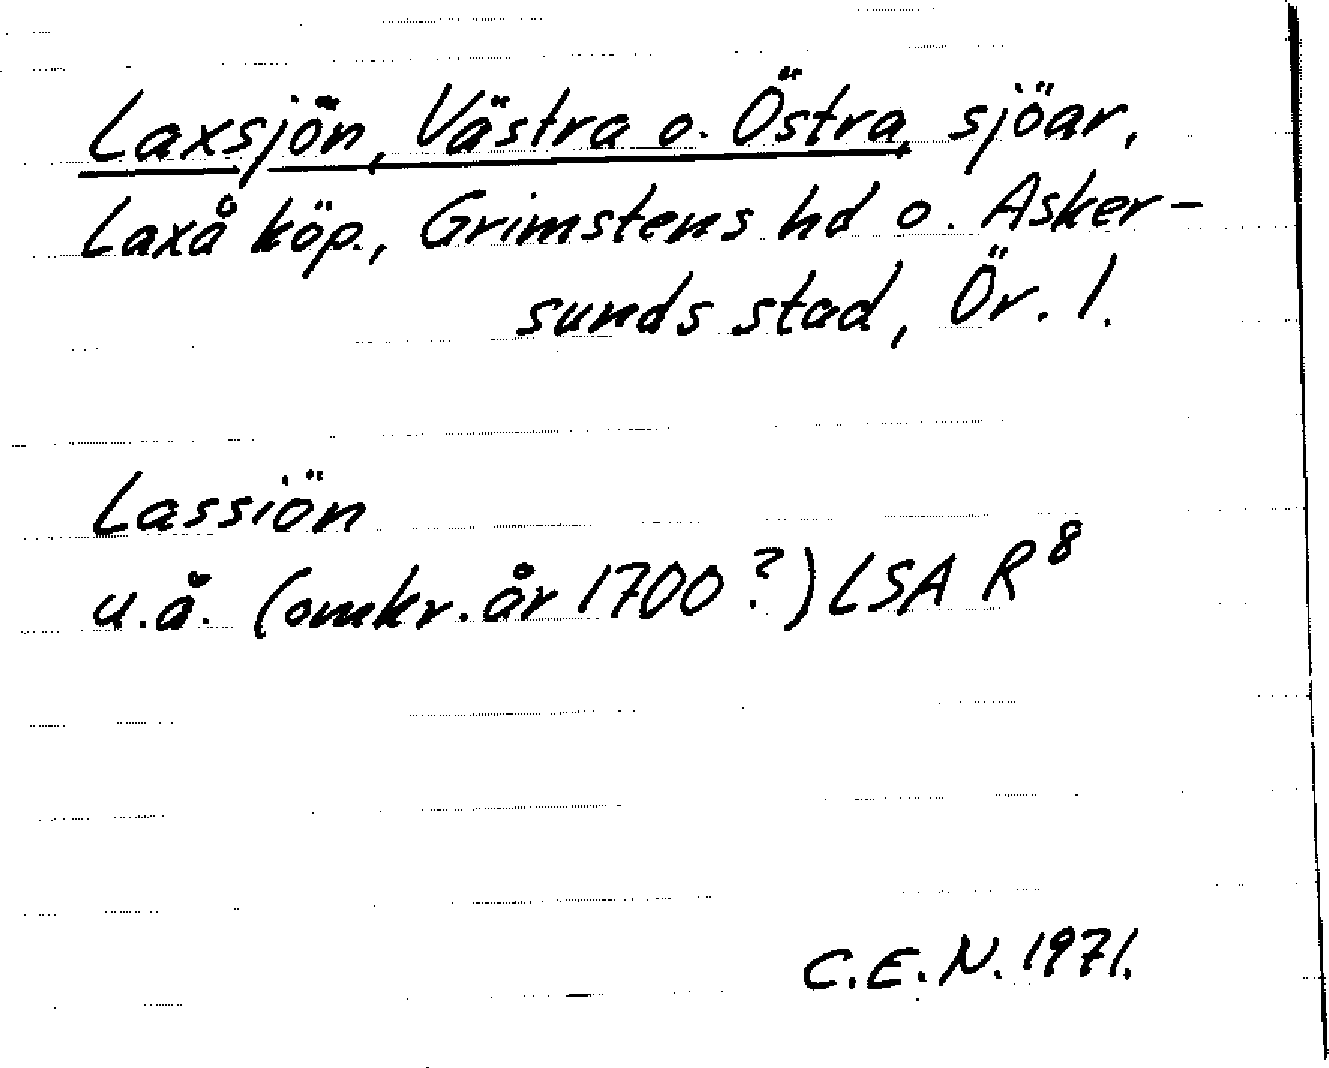 Laxsjön, Västra o. Östra, sjöar,
Laxå köp., Grimstens hd o. Asker-
sunds stad, Ör. l.
Lassiön
u.å. (omkr. år 1700?) LSA R⁸
C.E.N. 1971.